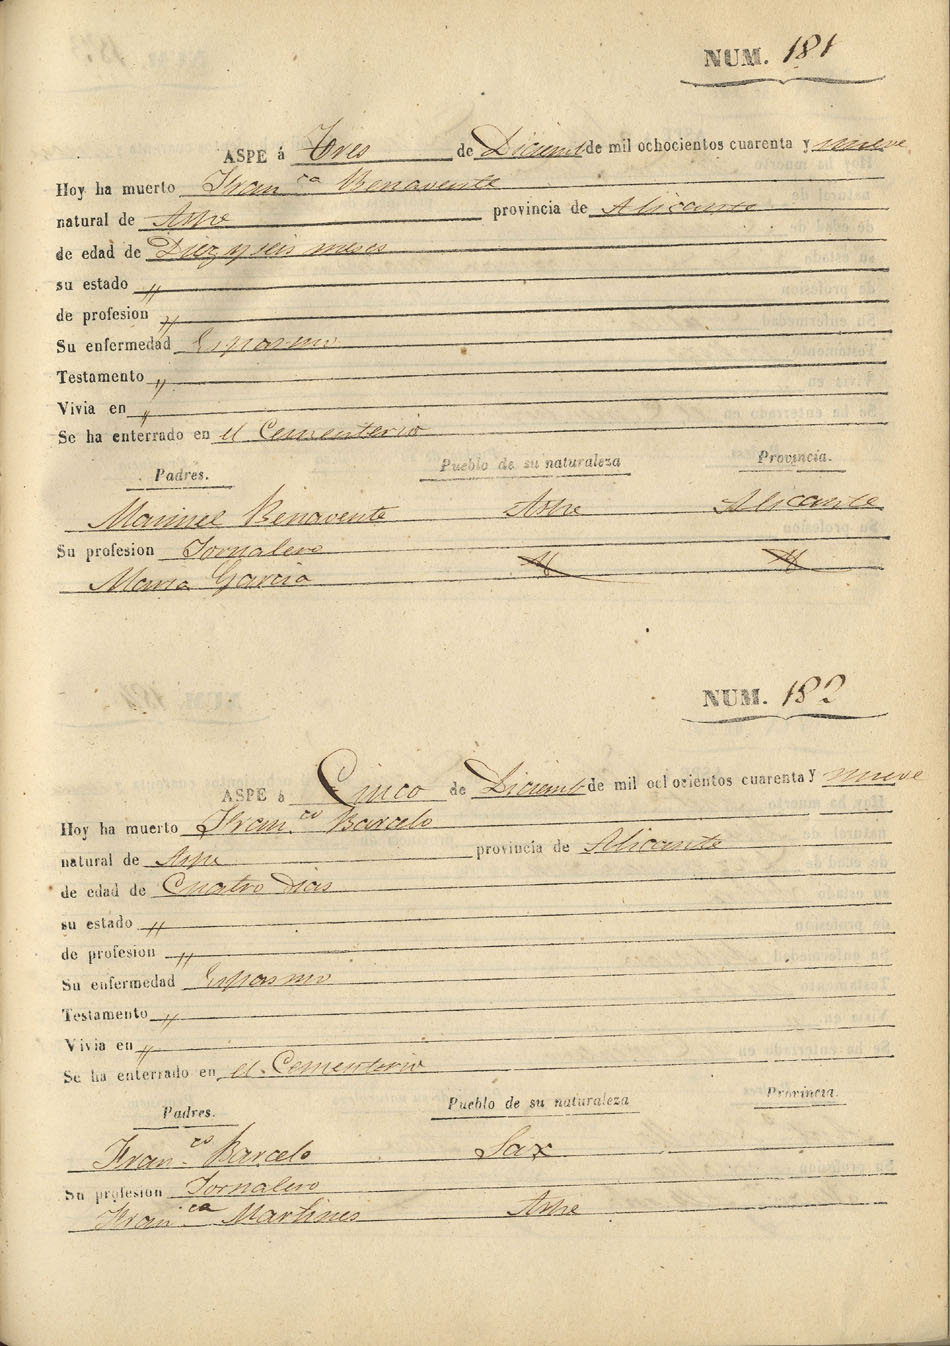 NUM. 181
ASPE á Tres de Diciemb de mil ochocientos cuarenta y nueve
Hoy ha muerto Fran.ca Benavente
natural de Aspe provincia de Alicante
de edad de Diez y seis meses
su estado "
de profesion "
Su enfermedad Espasmo
Testamento "
Vivia en "
Se ha enterrado en el Cementerio
Padres. Pueblo de su naturaleza Provincia.
Manuel Benavente Aspe Alicante
Su profesion Jornalero
Maria Garcia
NUM. 182
ASPE á Cinco de Diciemb de mil ochocientos cuarenta y nueve
Hoy ha muerto Fran.co Barcelo
natural de Aspe provincia de Alicante
de edad de Cuatro dias
su estado "
de profesion "
Su enfermedad Espasmo
Testamento "
Vivia en "
Se ha enterrado en el Cementerio
Padres. Pueblo de su naturaleza Provincia.
Fran.co Barcelo Sax
Su profesion Jornalero
Fran.ca Martines Aspe